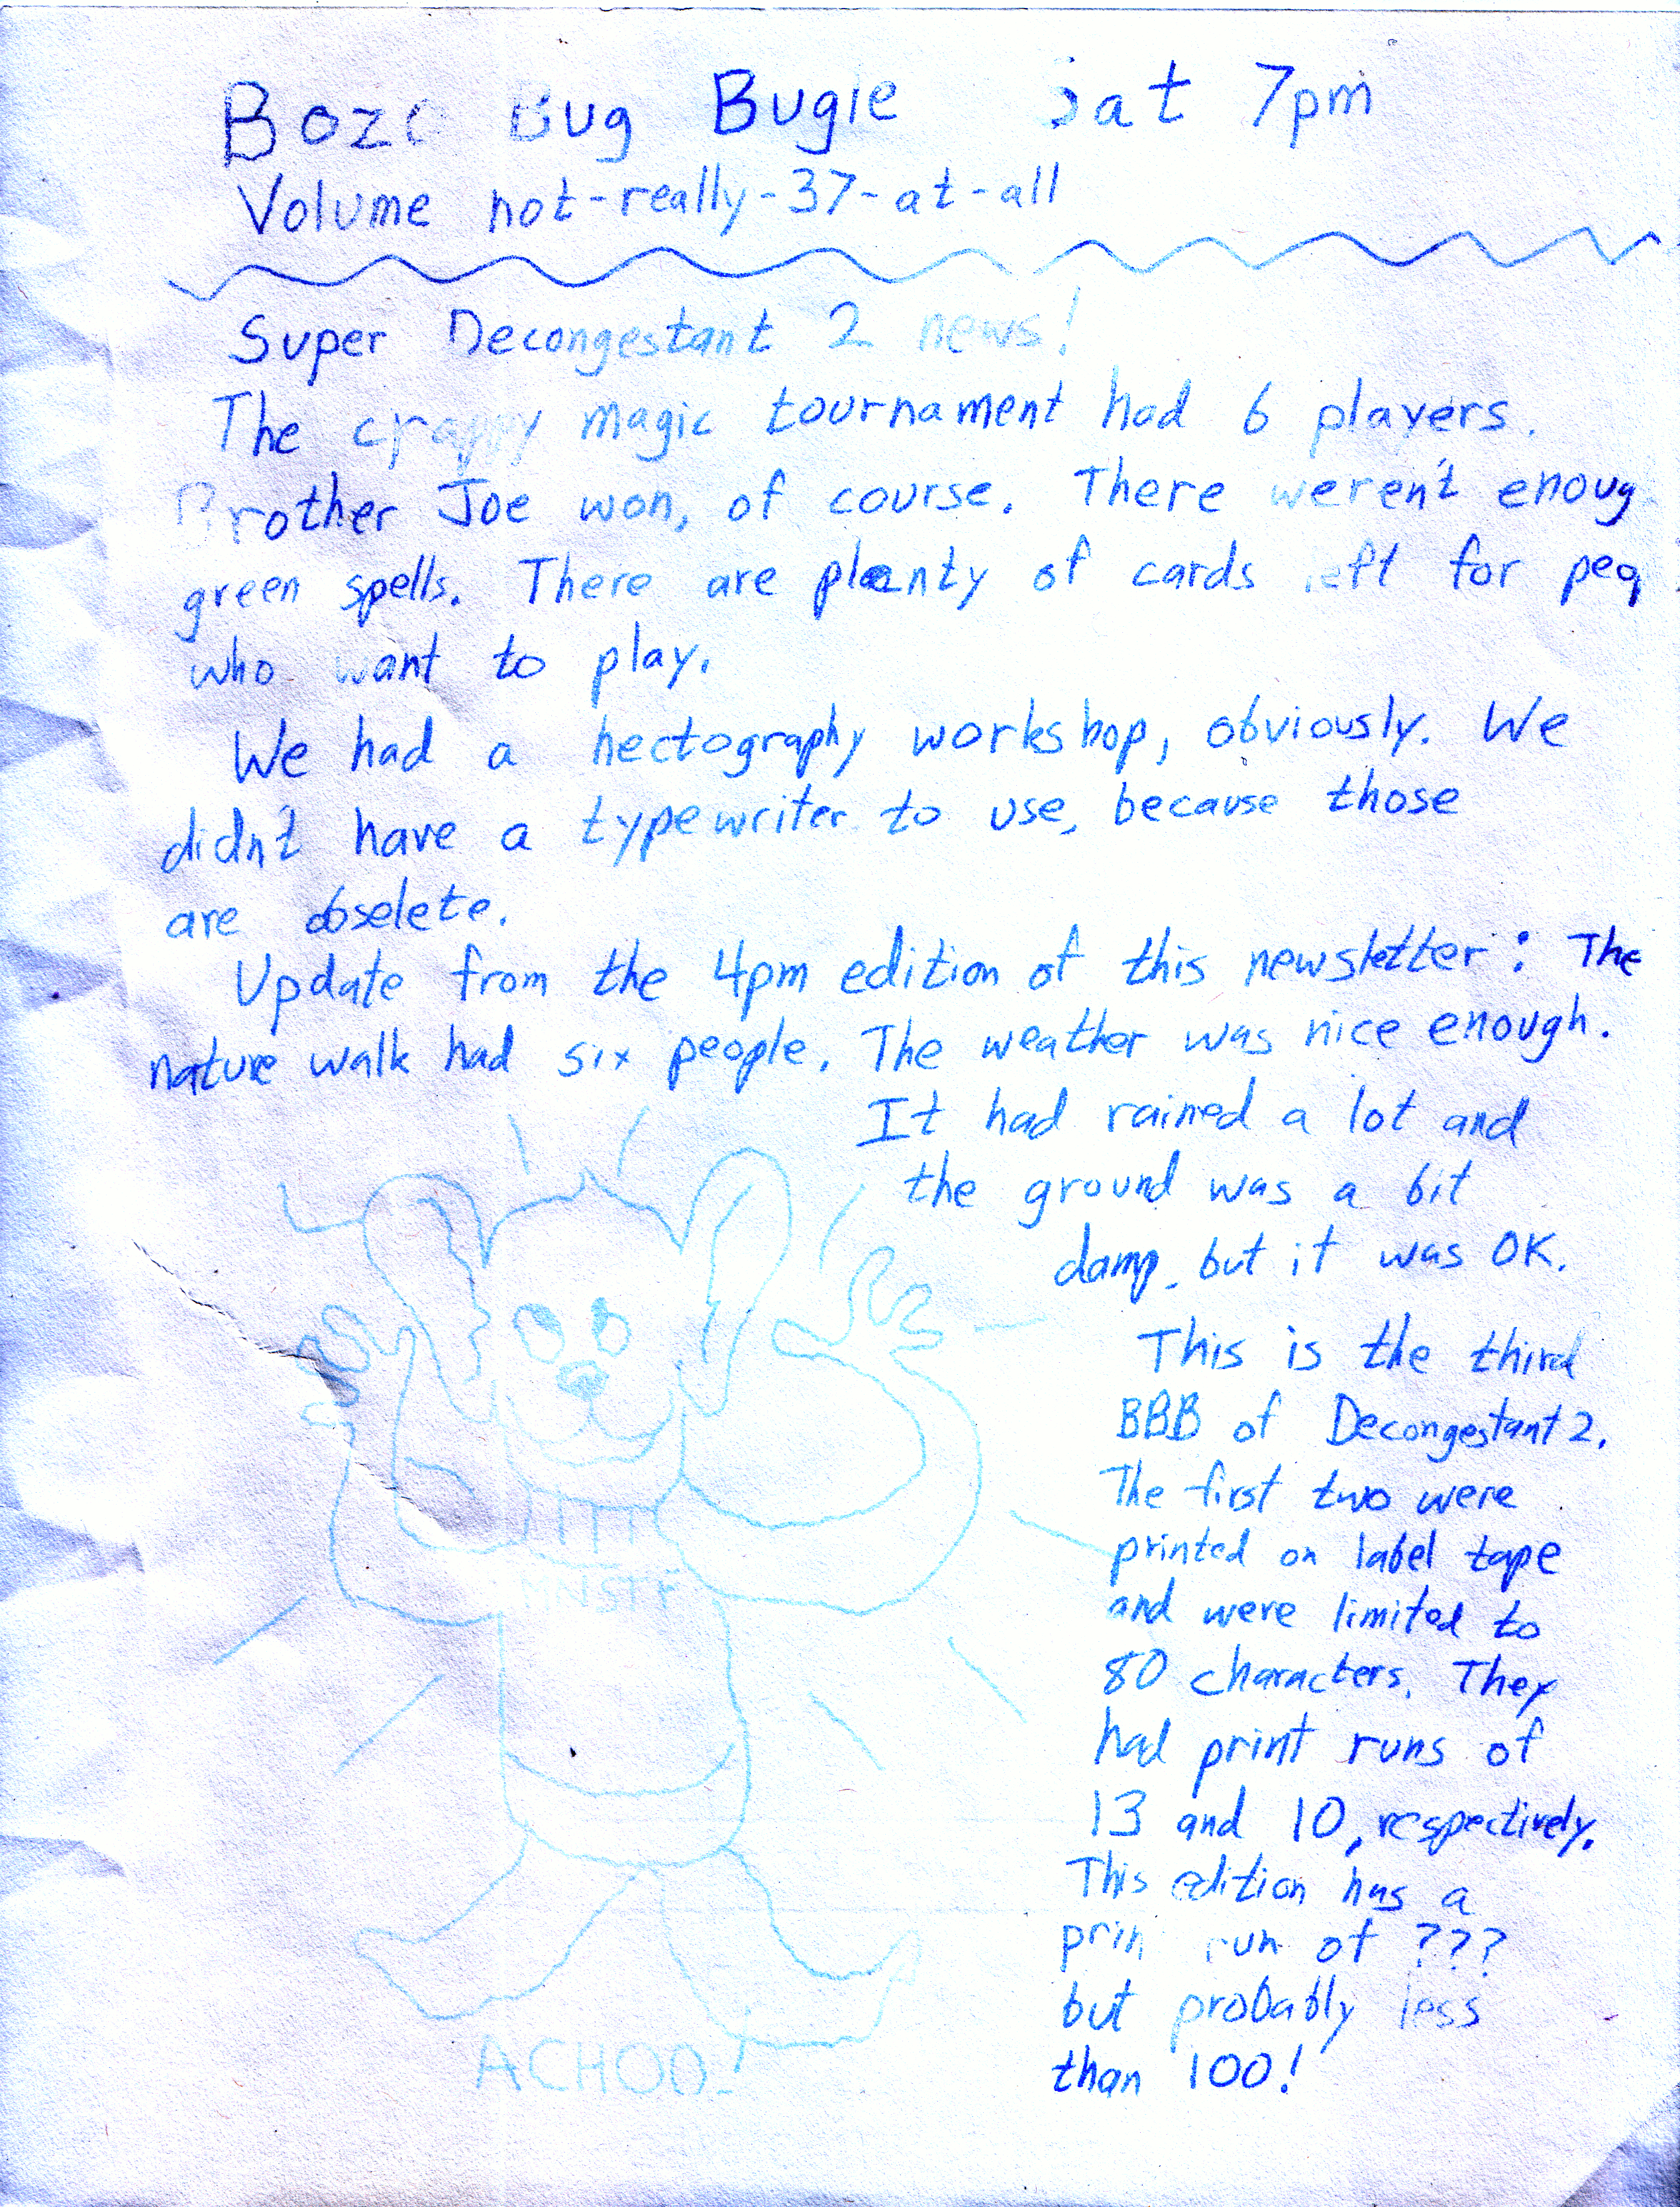 Bozo Bug Bugle Sat 7pm
Volume not-really-37-at-all
Super Decongestant 2 news!
The crappy magic tournament had 6 players.
Brother Joe won, of course. There weren't enoug
green spells. There are plenty of cards left for peq
who want to play.
We had a hectography workshop, obviously. We
didn't have a typewriter to use, because those
are obselete.
Update from the 4pm edition of this newsletter: The
nature walk had six people. The weather was nice enough.
It had rained a lot and
the ground was a bit
damp, but it was OK.
This is the third
BBB of Decongestant 2.
The first two were
printed on label tape
and were limited to
80 characters. They
had print runs of
13 and 10, respectively.
This edition has a
prin run of ???
but probably less
than 100!
ACHOO!